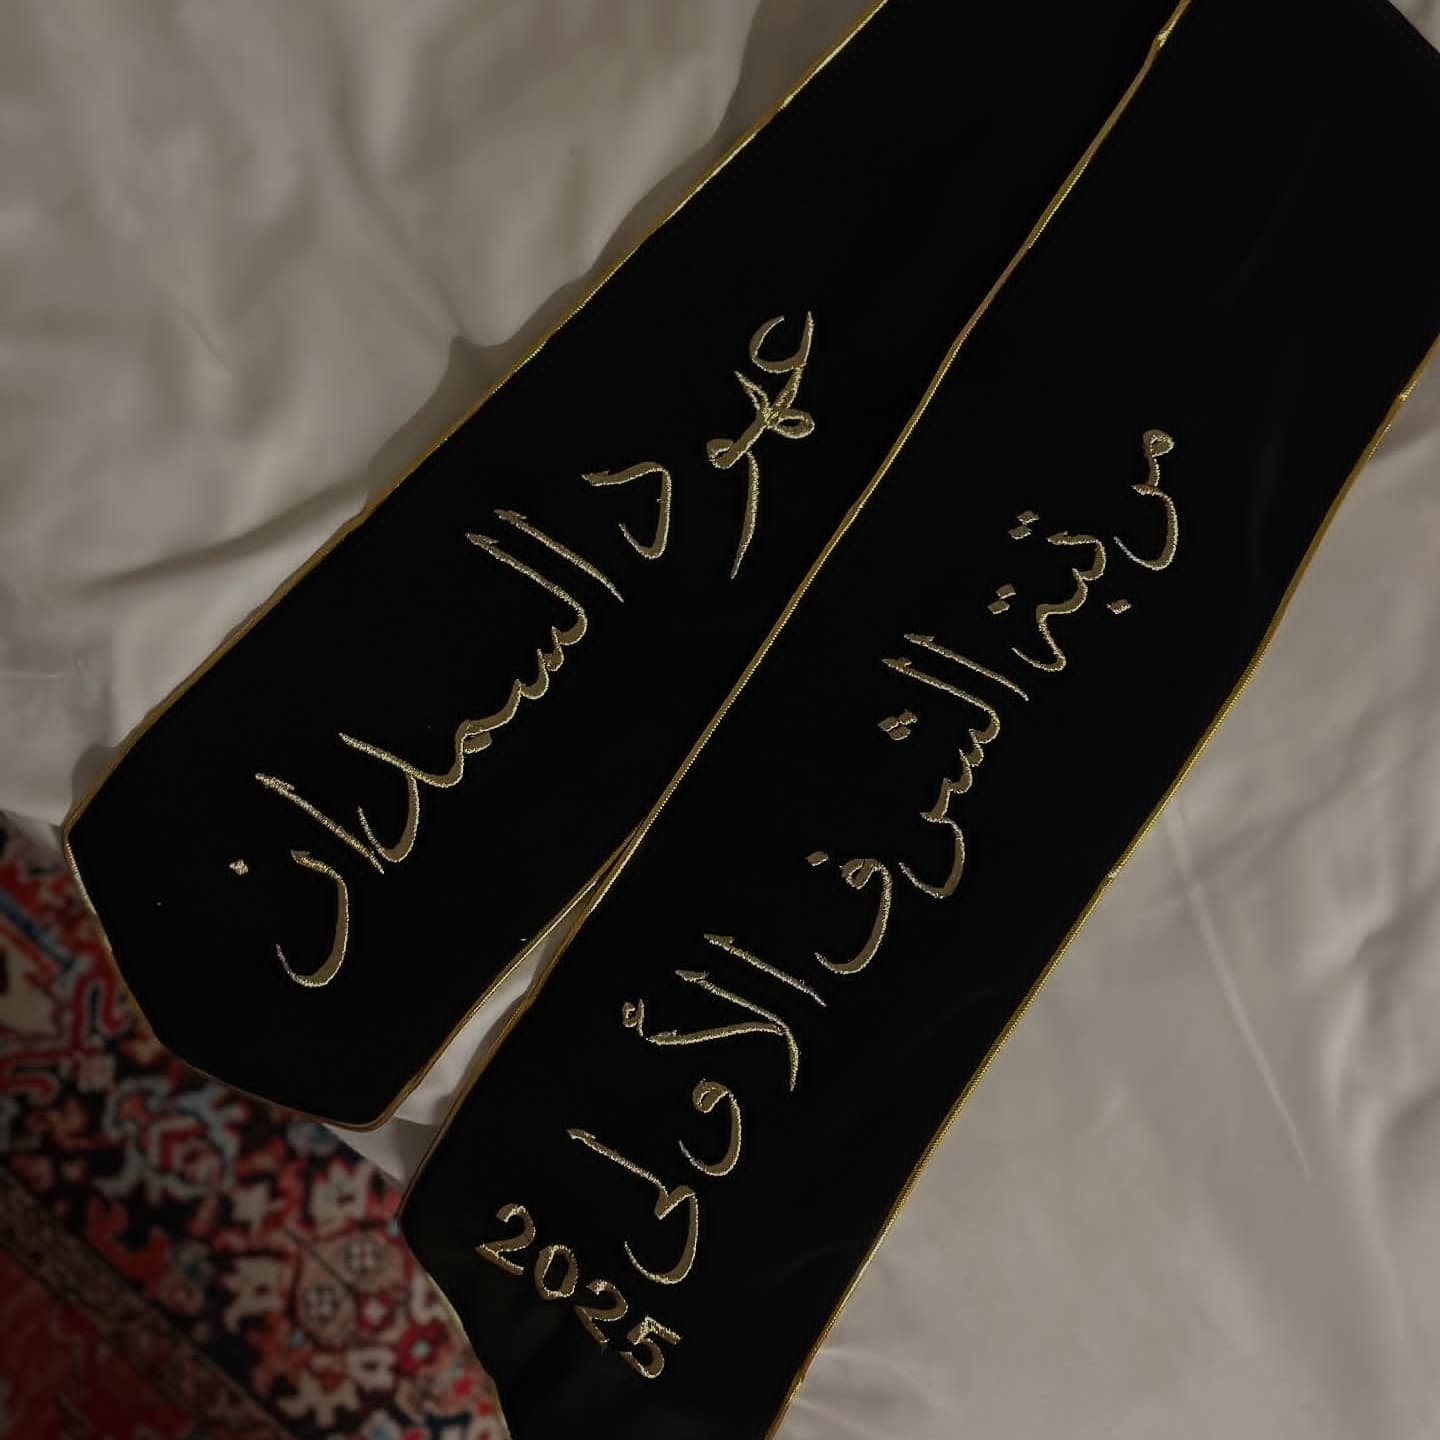 عهود السمدان
مرتبة الشرف الأولى
2025